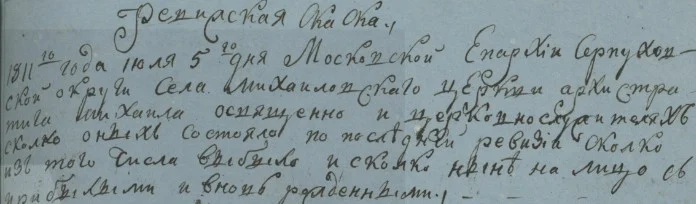 Ревижская Скаска.,
1811го года июля 5го дня Московской Епархіи Серпухов-
ской округи Села михаиловскаго церкви архистра-
тига михаила освященно и церковнослужителяхъ
сколко оныхъ состояло по последней ревизіи сколко
изъ того числа выбыло и сколко нынѣ на лицо съ
прибылыми и вновь рожденными.,